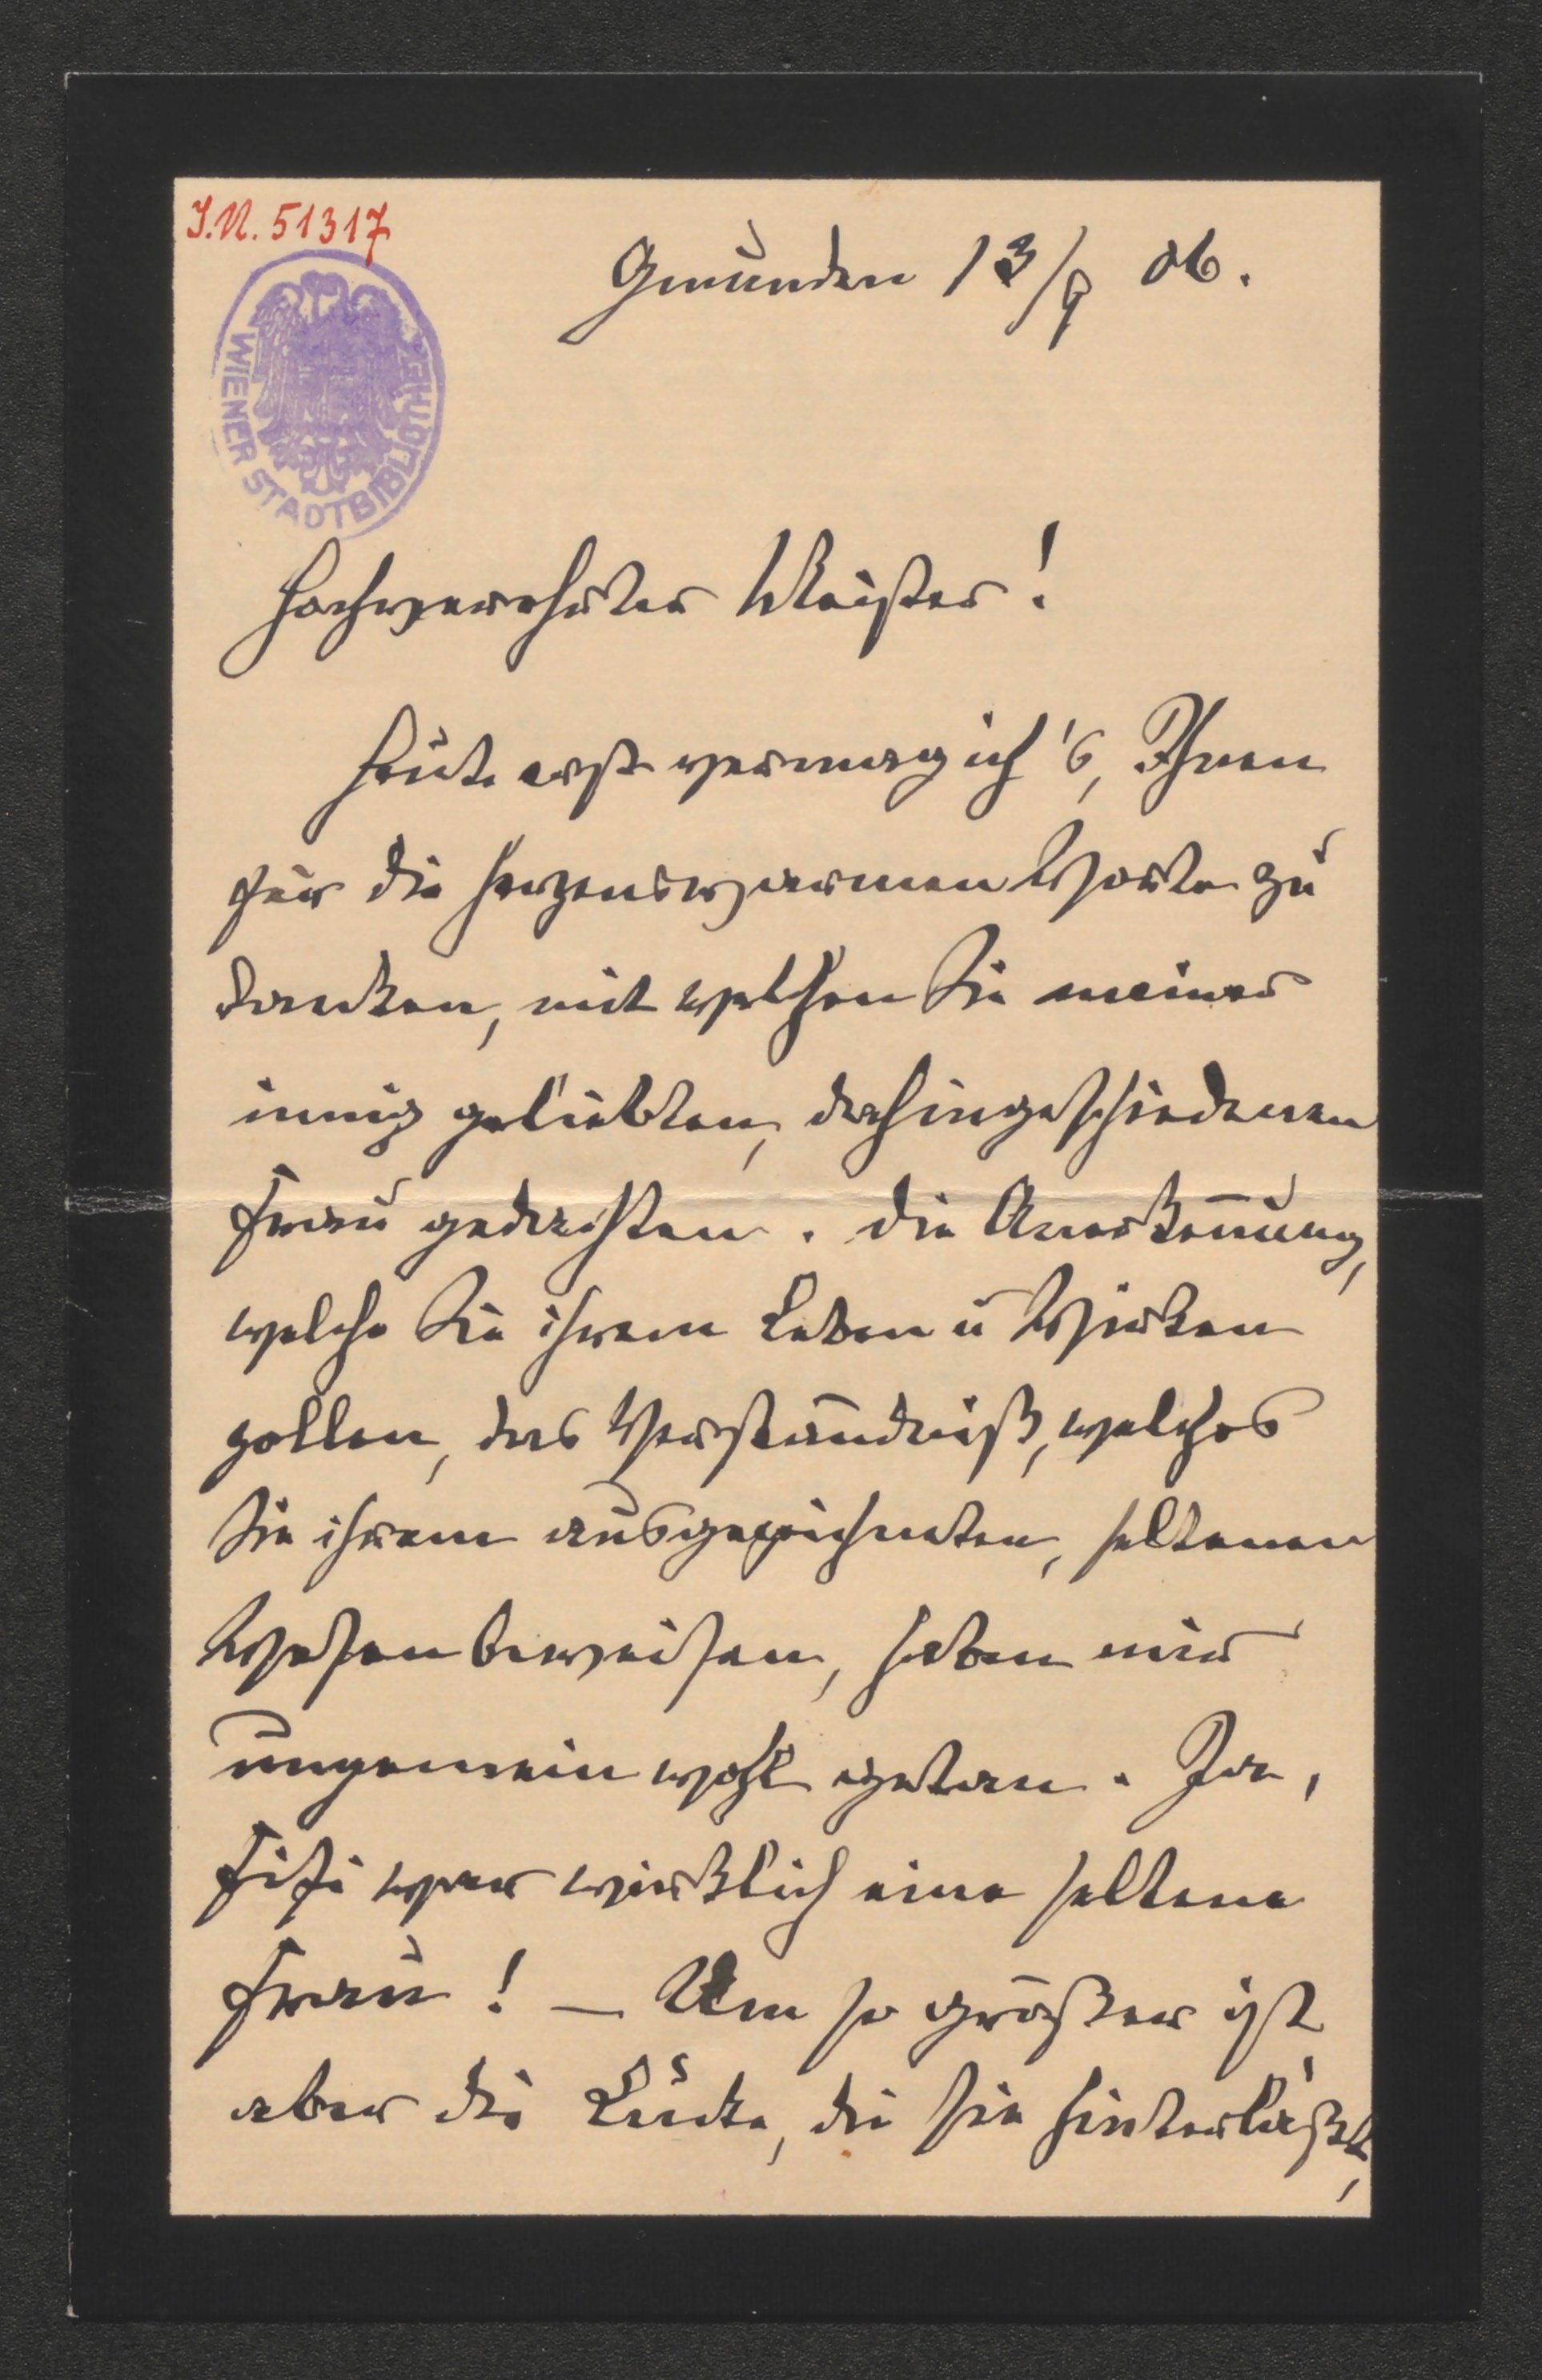 J.N. 51317
WIENER STADTBIBLIOTHEK
Gmunden 13/9 06.
Hochverehrter Meister!
Heute erst vermag ich's, Ihnen
für die herzenswarmen Worte zu
danken, mit welchen Sie meiner
innig geliebten, dahingeschiedenen
Frau gedachten. Die Anerkenn̄ung,
welche Sie ihrem Leben u Wirken
zollen, das Verständniß, welches
Sie ihrem ausgezeichneten, seltenen
Wesen beweisen, haben mir
ungemein wohl getan. Ja,
Fifi war wirklich eine seltene
Frau! — Um so größer ist
aber die Lücke, die sie hinterläßt,